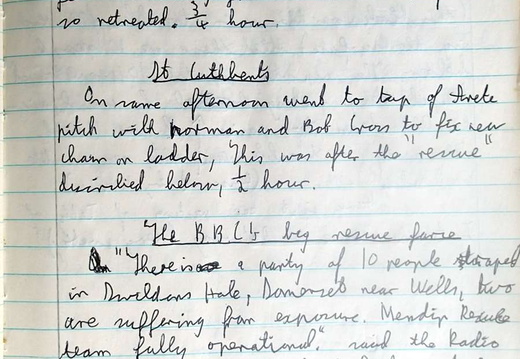 so retreated. 3/4 hour.
St Cuthberts
On same afternoon went to top of Arete
pitch with Norman and Bob Cross to fix new
chain on ladder, This was after the "rescue"
discribed below, 1/2 hour.
The B.B.C.'s big rescue farce
"There is a party of 10 people straped
in Swildons Hole, Somerset near Wells, two
are suffering from exposure. Mendip Rescue
team fully operational." said the Radio